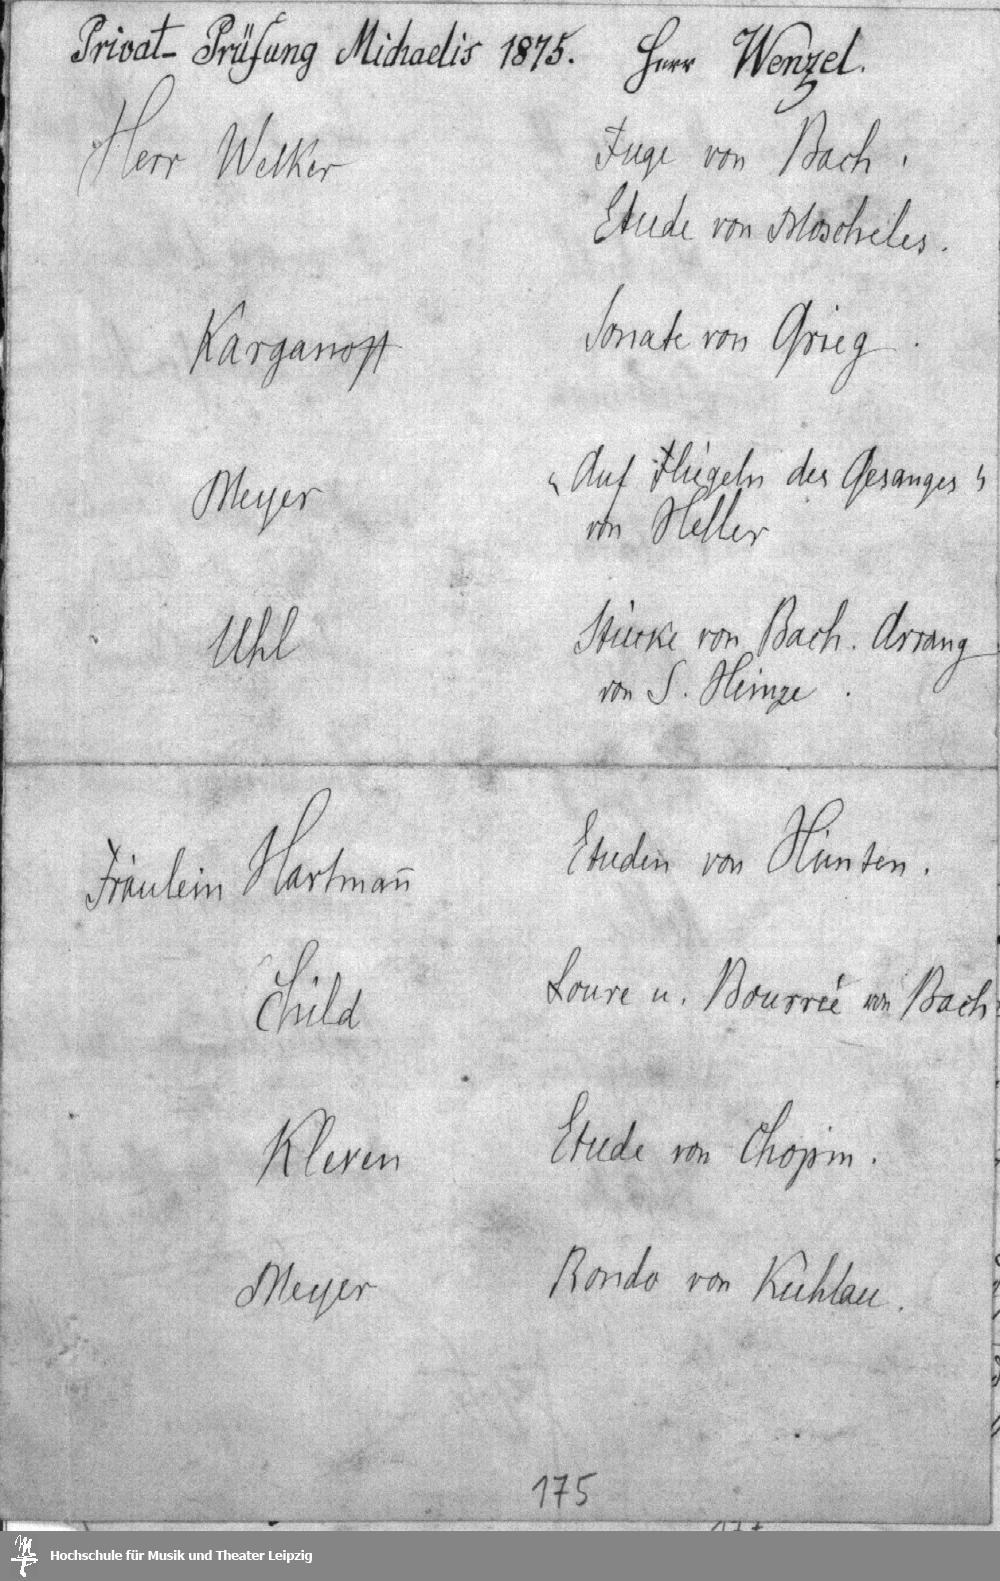 Privat-Prüfung Michaelis 1875. Herr Wenzel.
Herr Welker Fuge von Bach.
Etude von Moscheles.
Karganoff Sonate von Grieg.
Meyer "Auf Flügeln des Gesanges"
von Heller
Uhl Stücke von Bach. Arrang
von S. Heinze.
Fräulein Hartmañ Etuden von Hünten.
Child Loure u. Bourrée von Bach
Kleven Etude von Chopin.
Meyer Rondo von Kuhlau.
175
Hochschule für Musik und Theater Leipzig